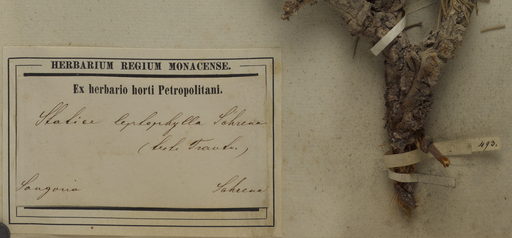 HERBARIUM REGIUM MONACENSE.
Ex herbario horti Petropolitani.
Statice leptophylla Schrenk
(teste Trautv.)
Songoria Schrenk
493.